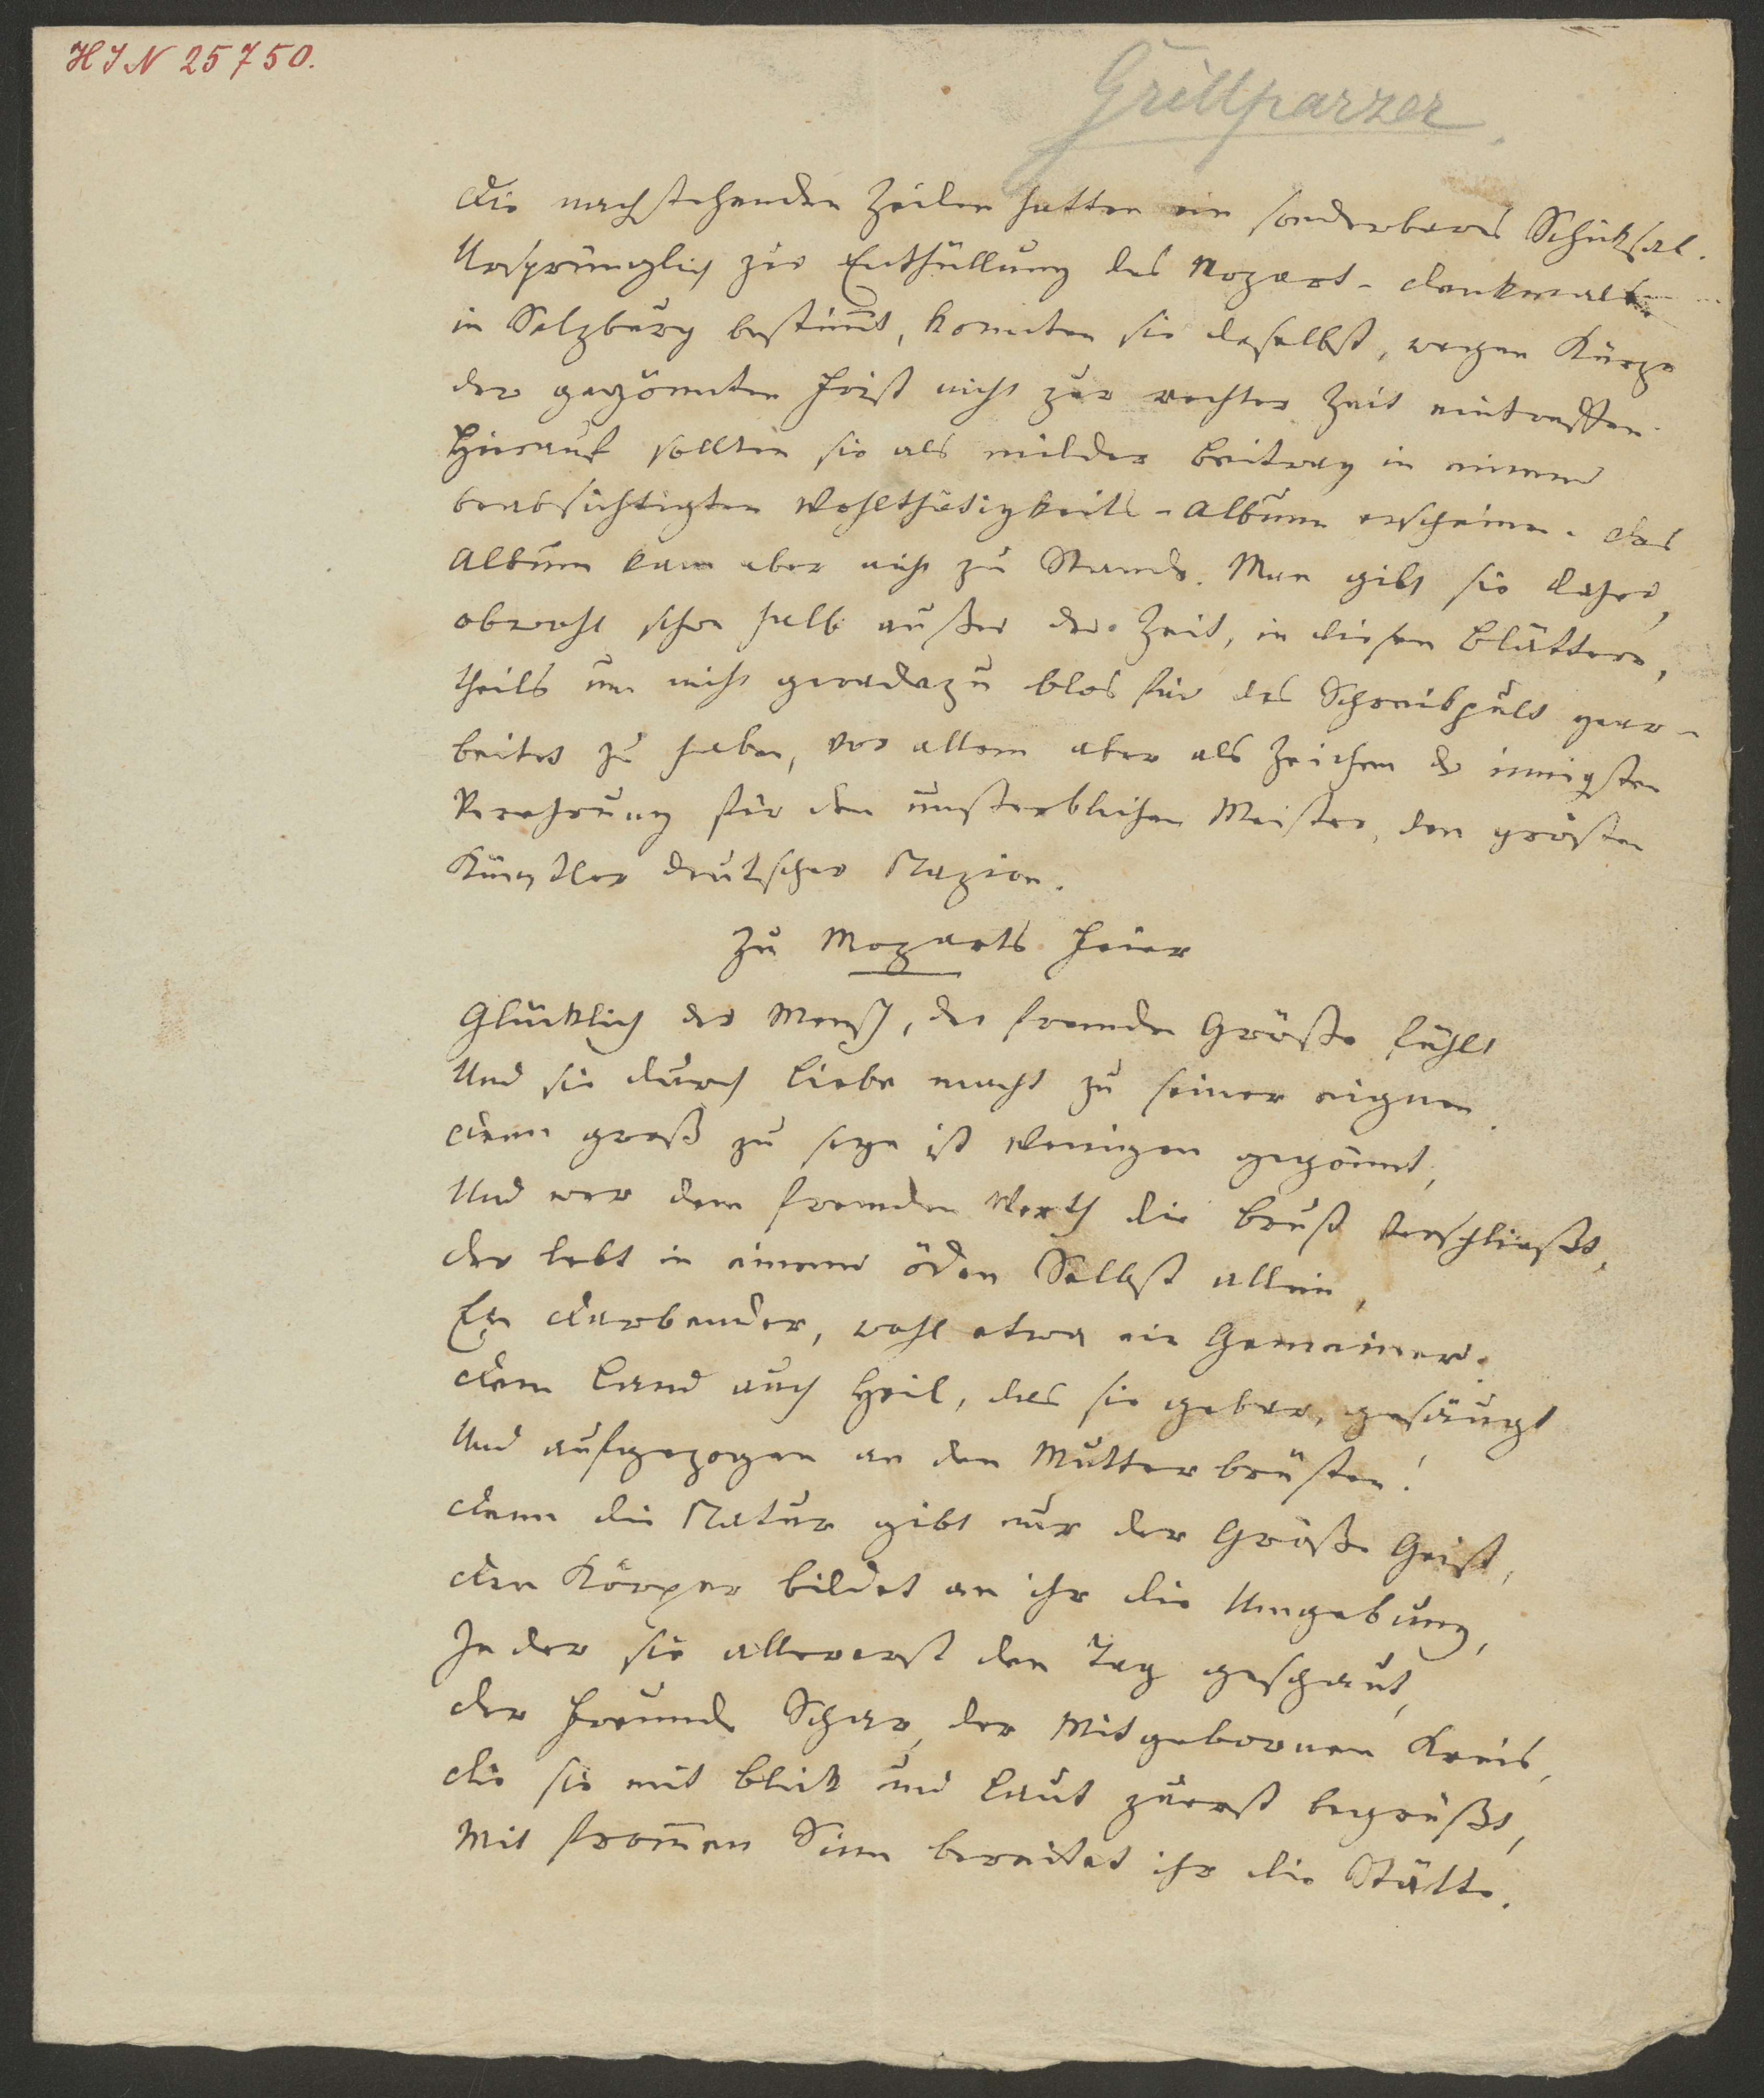 HIN 25750.
Grillparzer.
Die nachstehenden Zeilen hatten ein sonderbares Schicksal.
Ursprünglich zur Enthüllung des Mozart-Denkmals
in Salzburg bestim̄t, konnten sie daselbst, wegen Kürze
der gegönnten Frist nicht zur rechten Zeit eintreffen.
Hierauf sollten sie als milder Beitrag in einem
beabsichtigten Wohlthätigkeits-Album erscheinen. Das
Album kam aber nicht zu Stande. Man gibt sie daher,
obwohl schon halb außer der Zeit, in diesen Blättern,
theils um nicht geradezu blos für das Schreibpult gear-
beitet zu haben, vor allem aber als Zeichen der innigsten
Verehrung für den unsterblichen Meister, den grösten
Künstler deutscher Nazion.
Zu Mozarts Feier
Glücklich der Mensch, der fremde Größe fühlt
Und sie durch Liebe macht zu seiner eignen.
Denn groß zu seyn ist Wenigen gegönnt,
Und wer dem fremden Werth die Brust verschließt,
Der lebt in einem öden Selbst allein,
Ein Darbender, wohl etwa ein Gemeiner.
Dem Land auch Heil, das sie gebar, gesäugt
Und aufgezogen an den Mutterbrüsten!
Denn die Natur gibt nur der Größe Geist,
Den Körper bildet an ihr die Umgebung,
In der sie allererst den Tag geschaut,
Der Freunde Schar, der Mitgebornen Kreis,
Die sie mit Blick und Laut zuerst begrüßt,
Mit from̄en Sinn bereitet ihr die Stätte.